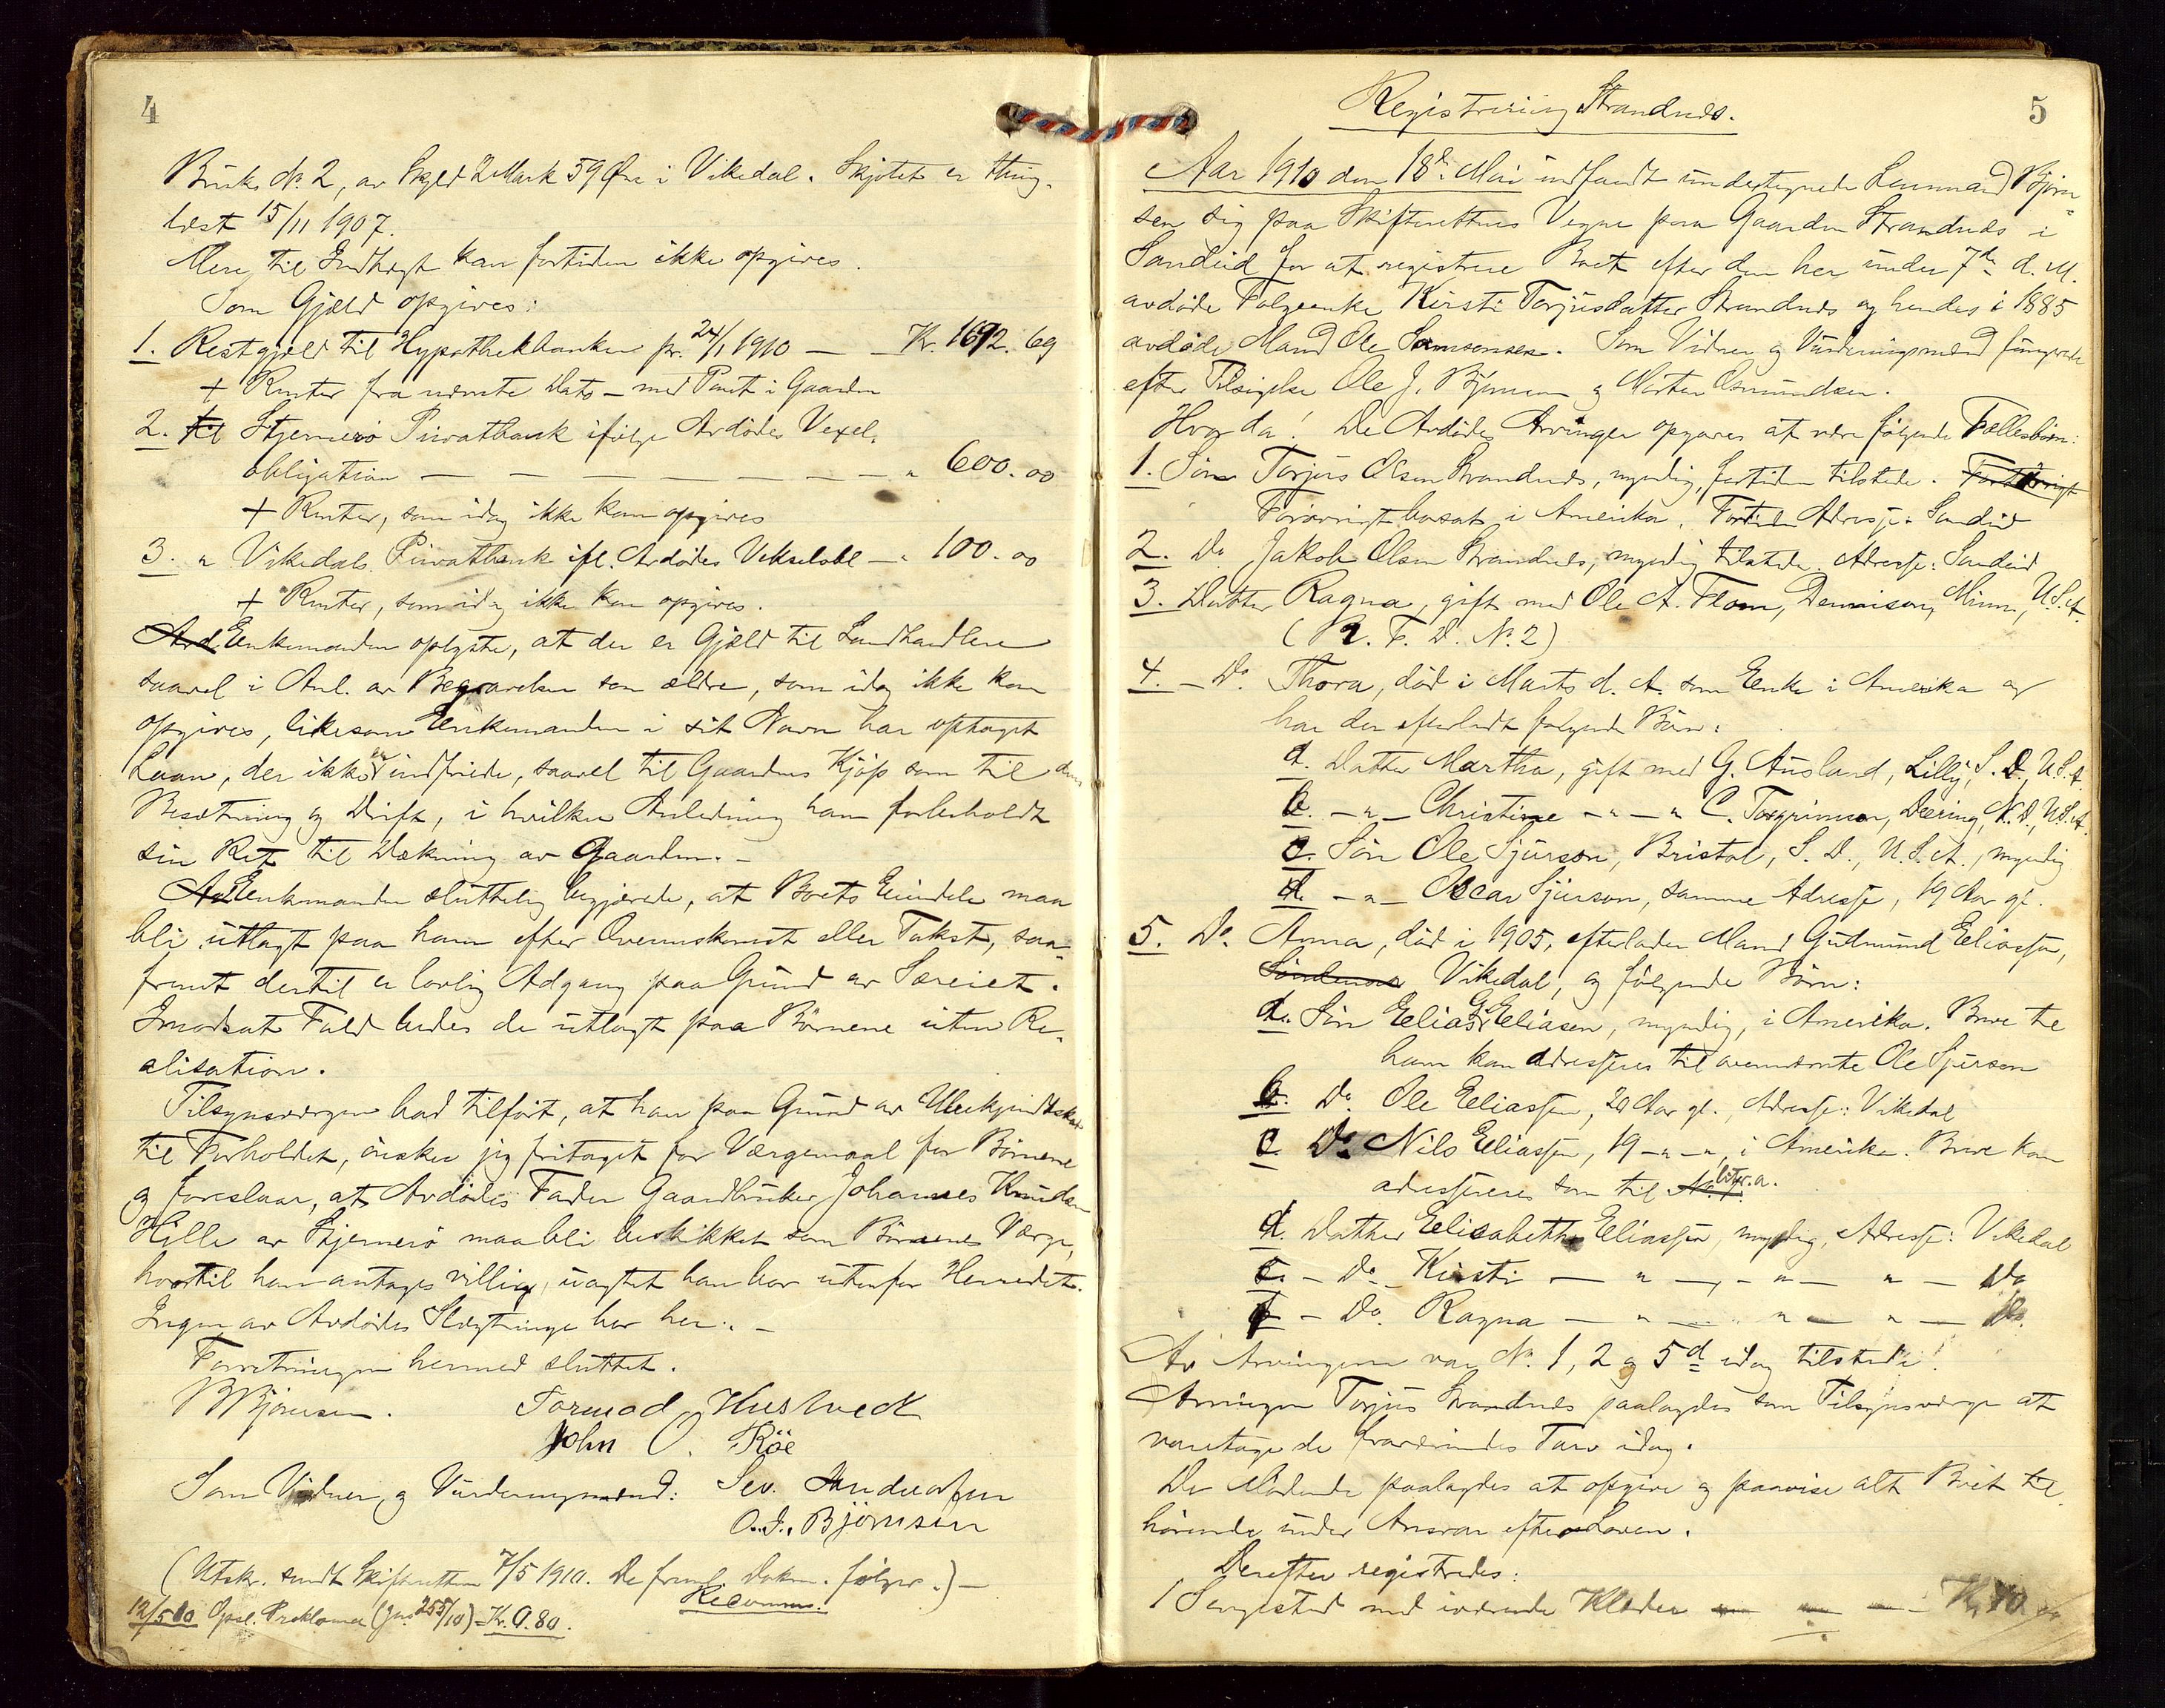 4
Bruks No. 2, av Skyld 2 Mark 59 Øre i Vikedal. Skjøtet er thing-
læst 15/11 1907.
Mere til Indtægt kan fortiden ikke opgives.
Som Gjæld opgives:
1. Restgjæld til Hypothekbanken pr. 24/1 1910 — Kr. 1692.69
+ Renter fra nævnte Dato – med Pant i Gaarden
2. til Stjernerö Privatbank ifölge Avdödes Vexel-
obligation — — — — — — — " 600.00
+ Renter, som idag ikke kan opgives
3. " Vikedals Privatbank ifl. Avdödes Vekselobl — " 100.00
+ Renter, som idag ikke kan opgives.
Avd Enkemanden oplyste, at der er Gjæld til Landhandlere
saavel i Anl. av Begravelsen som ældre, som idag ikke kan
opgives, likesom Enkemanden i sit Navn har optaget
Laan, der ikke er indfriede, saavel til Gaardens Kjöp som til dens
Besætning og Drift, i hvilken Anledning han forbeholdt
sin Ret til Dækning av Gaarden. –
Av Enkemanden sluttelig begjærede, at Boets Eiendele maa
bli utlagt paa ham efter Overenskomst eller Takst, saa-
fremt dertil er lovlig Adgang paa Grund av Særeiet.
I modsat Fald bedes de utlagt paa Börnene uten Re-
alisation.
Tilsynsværgen bad tilfört, at han paa Grund av Ubekjendtskab
til Forholdet, önsker sig fritaget for Værgemaal for Börnene
og foreslaar, at Avdödes Fader Gaardbruker Johannes Knudsen
Hille av Stjernerö maa bli beskikket som Börnenes Værge,
hvortil han antages villig, uagtet han bor utenfor Herredet.
Ingen av Avdödes Slægtninge bor her. –
Forretningen hermed sluttet.
B Björnsen. Tormod Hustveck
John O. Röe
Som Vidner og Vurderingsmænd: Sev. Andreasen
O. J. Björnsen
(Utskr. sendt Skifteretten 7/5 1910. De freml. Dokm. følger.) –
Recomm.
12/5 10 Opsl. Proklama (Jno. 255/10) – Kr. 0.80.
5
Registrering Strandnæs.
Aar 1910 den 18de Mai indfandt undertegnede Lensmand Björn-
sen sig paa Skifterettens Vegne paa Gaarden Strandnæs i
Sandeid for at registrere Boet efter den her under 7de d. M.
avdöde Folgeenke Kirsti Torjusdatter Strandnæs og hendes i 1885
avdöde Mand Ole Samsonsen. Som Vidner og Vurderingsmænd fungerede
efter Tilsigelse Ole J. Björnsen og Morten Osmundsen.
Hvorda! De Avdödes Arvinger opgaves at være fölgende Fællesbörn:
1. Sön Torjus Olsen Strandnæs, myndig, fortiden tilstede.
Forövrigt bosat i Amerika. Fortiden Adresse: Sandeid
2. Do Jakob Olsen Strandnæs, myndig tilstede. Adresse: Sandeid
3. Datter Ragna, gift med Ole A. Flom, Dennison, Minn., U.S.A.
(R. F. D. No. 2)
4. – Do. Thora, död i Marts d. A. som Enke i Amerika og
har den efterladt fölgende Börn:
a. Datter Martha, gift med G. Ausland, Lilly, S. D., U.S.A.
b. – " – Christine – " – " C. Torgrimson, Deering, N. D., U.S.A.
c. Sön Ole Sjurson, Bristol, S. D., U.S.A., myndig
d. – " – Oscar Sjurson, samme Adresse, 19 Aar gl.
5. Do. Anna, död i 1905, efterlader Mand Gudmund Eliassen,
Vikedal, og fölgende Börn:
a. Sön Elias G. Eliasen, myndig, i Amerika. Breve til
ham kan adresseres til ovennævnte Ole Sjurson
b. Do. Ole Eliassen, 20 Aar gl., Adresse: Vikedal
c. Do. Nils Eliassen, 19 – " – ", i Amerika. Breve kan
adresseres som til No. 1 litr. a.
d. Datter Elisabetha Eliassen, myndig, Adresse: Vikedal
e. – Do. Kirsti — " — , – " — " — Do
f. – Do. Ragna — " — " — " — Do.
Av Arvingerne var No. 1, 2 og 5 d idag tilstede!
Arvingen Torjus Strandnæs paalagdes som Tilsynsværge at
varetage de fraværendes Tarv idag.
De Mödende paalagdes at opgive og paavise alt Boet til-
hörende under Ansvar efter Loven.
Derefter registredes:
1 Sengested med værende Klæder — — — Kr. 10.00